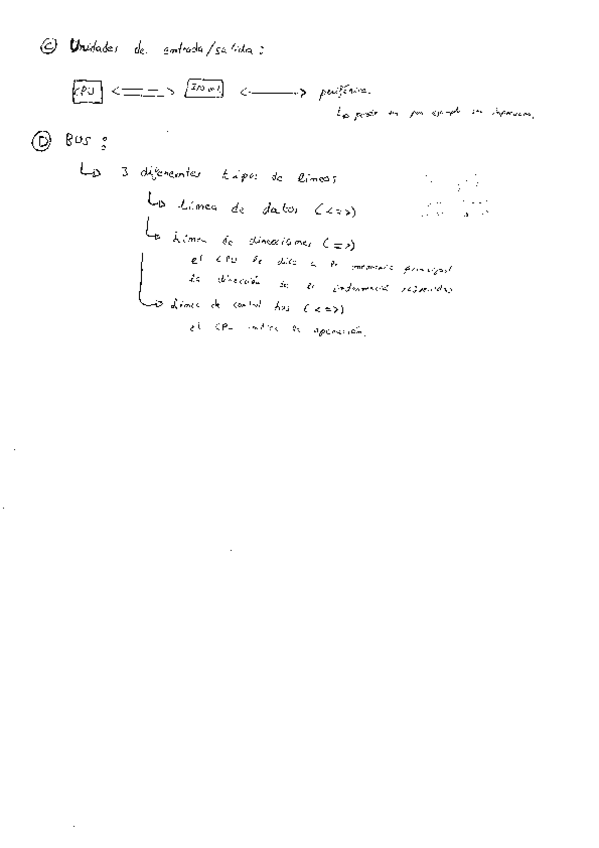 C Unidades de entrada/salida:
CPU <====> <------> periférico.
↳ puede ser por ejemplo un impresora.
D BUS:
↳ 3 diferentes tipos de lineas
↳ Linea de datos (<=>)
↳ Linea de direcciones (=>)
el CPU le dice a la memoria principal
la dirección de la información
↳ Linea de control bus (<=>)
el CPU indica la operación.